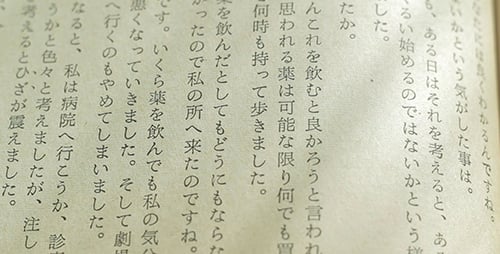 わかるんですね。
いかという気がした事は。
も、ある日はそれを考えると、ある
るい始めるのではないかという様
した。
たか。
んこれを飲むと良かろうと言われ
思われる薬は可能な限り何でも買
を何時も持って歩きました。
薬を飲んだとしてもどうにもならな
かったので私の所へ来たのですね。
です。いくら薬を飲んでも私の気分
悪くなっていきました。そして劇場
へ行くのもやめてしまいました。
なると、私は病院へ行こうか、診
うかと色々と考えましたが、注し
考えるとひざが震えました。